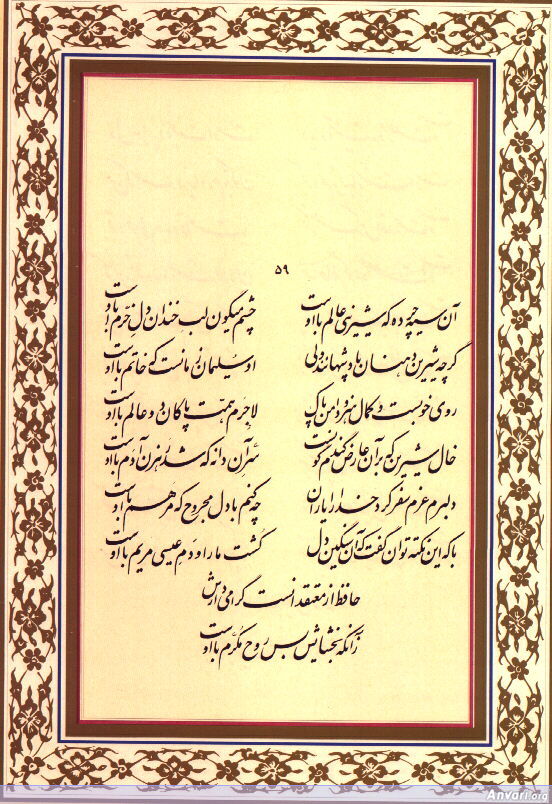 ۵۹
آن سیه چرده که شیرینی عالم با اوست چشم میگون لب خندان دل خرم با اوست
گرچه شیرین دهنان پادشهانند ولی او سلیمان زمانست که خاتم با اوست
روی خوبست و کمال هنر و دامن پاک لاجرم همت پاکان دو عالم با اوست
خال شیرین که بر آن عارض گندم گونست سر آن دانه که شد رهزن آدم با اوست
دلبرم عزم سفر کرد خدا را یاران چه کنم با دل مجروح که مرهم با اوست
با که این نکته توان گفت که آن سنگین دل کشت ما را و دم عیسی مریم با اوست
حافظ از معتقدانست گرامی دارش
زانکه بخشایش بس روح مکرم با اوست
Anvari.org